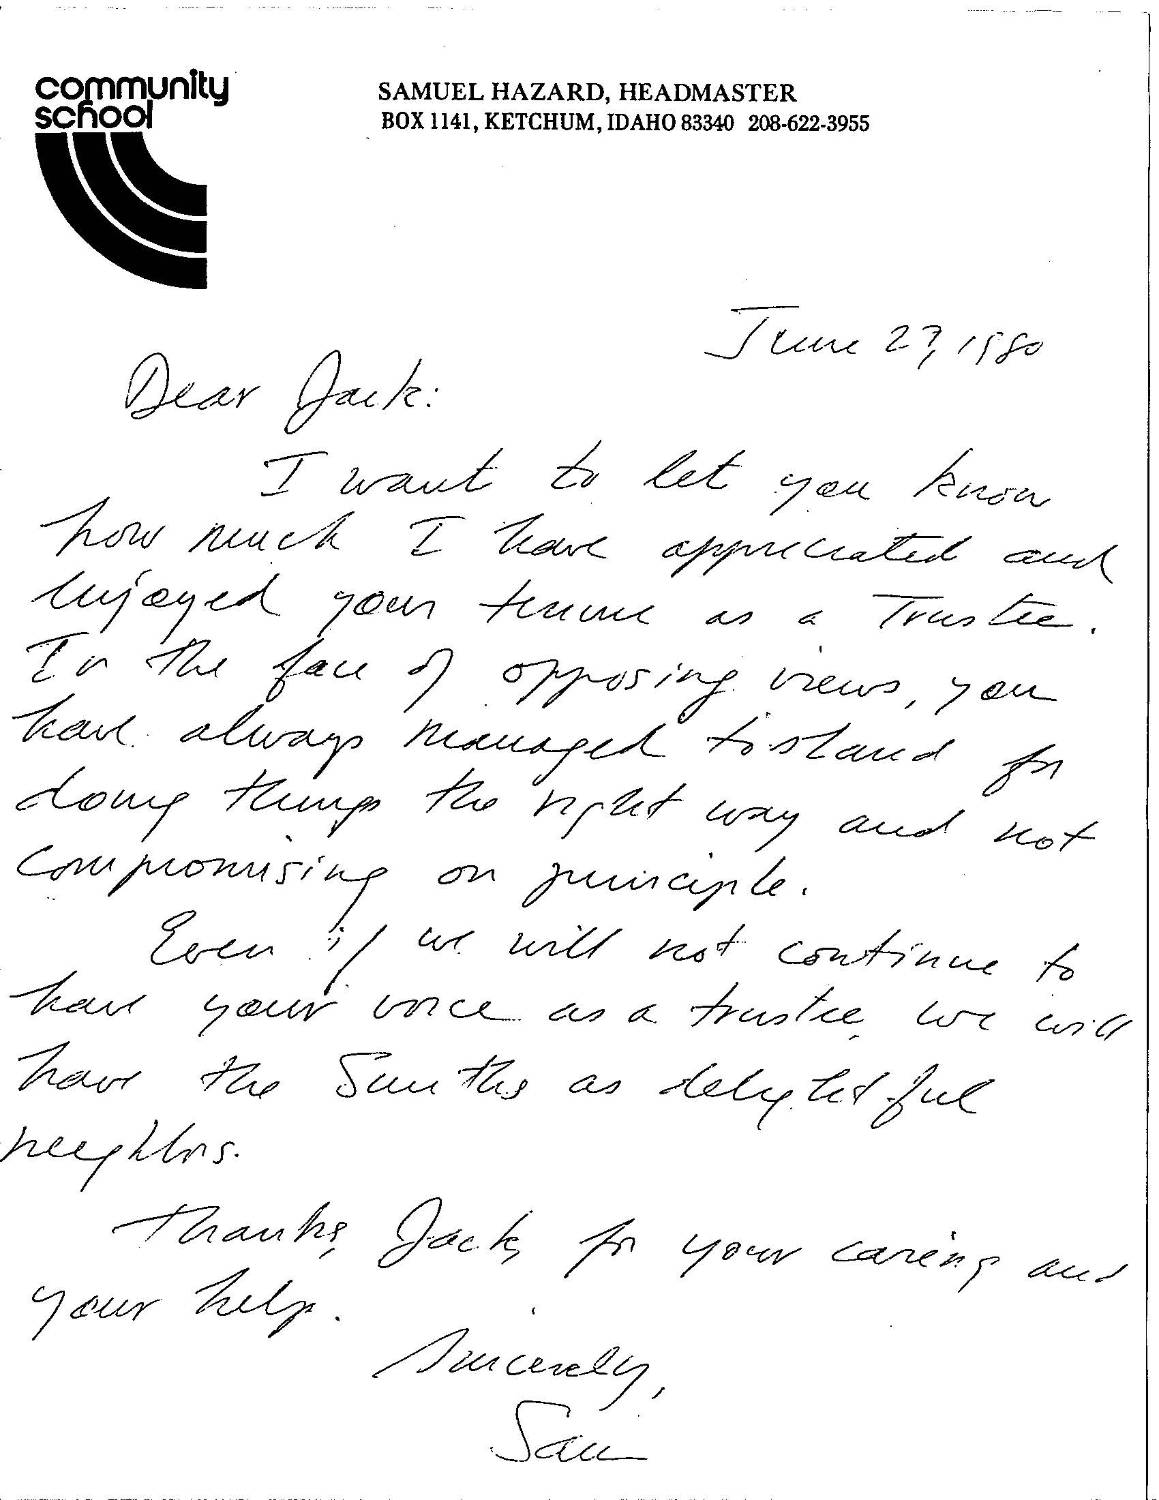 community
school
SAMUEL HAZARD, HEADMASTER
BOX 1141, KETCHUM, IDAHO 83340 208-622-3955
June 27, 1980
Dear Jack:
I want to let you know
how much I have appreciated and
enjoyed your tenure as a Trustee.
In the face of opposing views, you
have always managed to stand for
doing things the right way and not
compromising on principle.
Even if we will not continue to
have your voice as a trustee, we will
have the Smiths as delightful
neighbors.
Thanks, Jack, for your caring and
your help.
Sincerely,
Sam